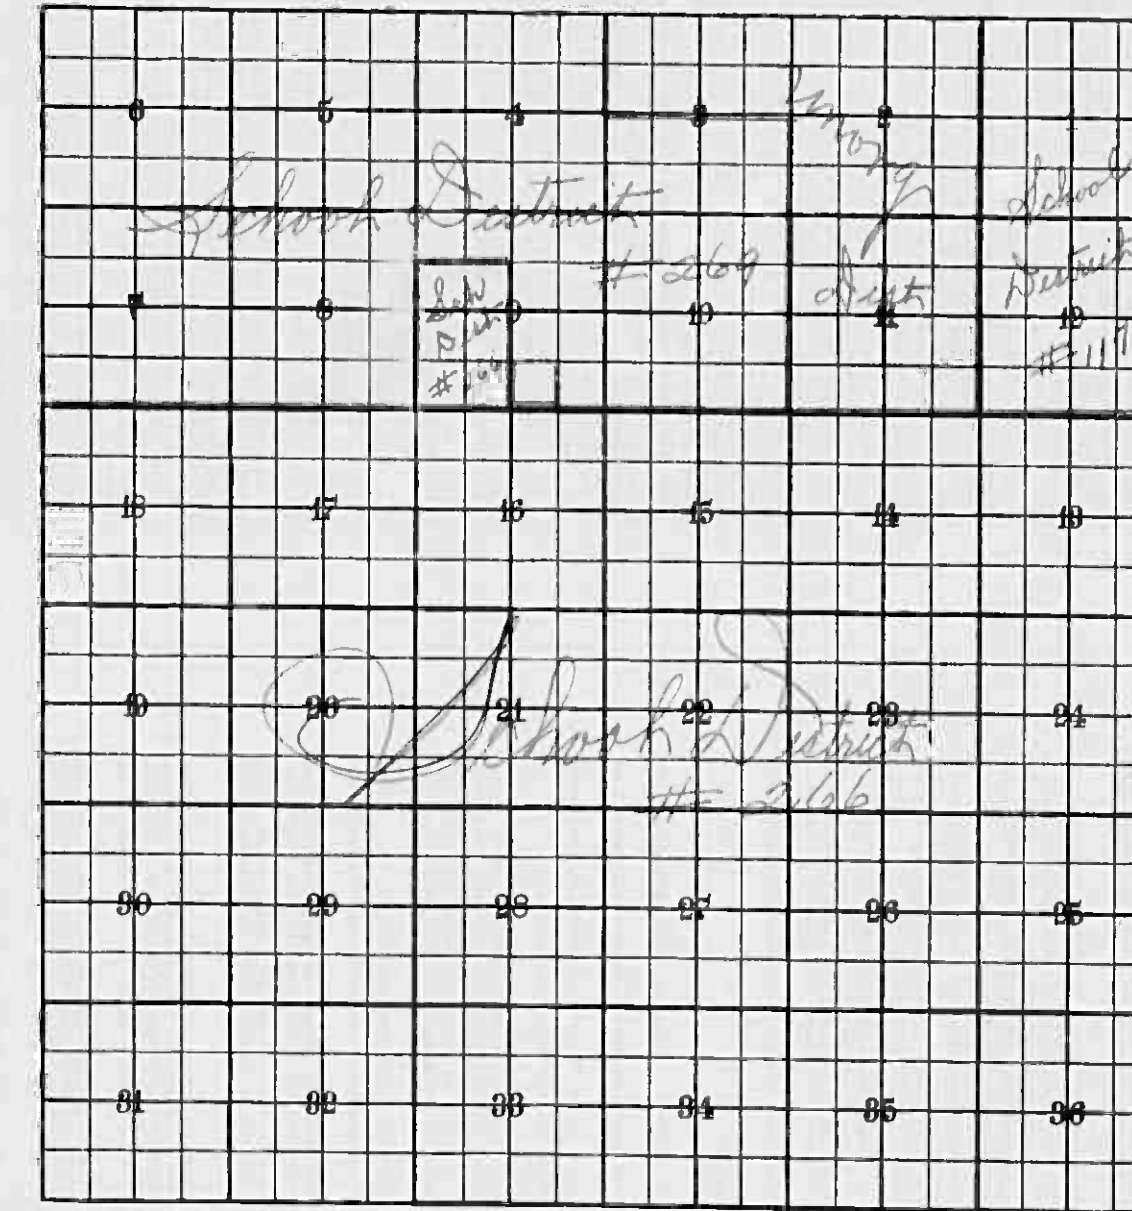 6 5 4 3 2
School District
# 269
Unorg
Dist
School
District
# 117
7 8 9 10 11 12
Sch
Dist
#
18 17 16 15 14 13
19 20 21 22 23 24
School District
# 266
30 29 28 27 26 25
31 32 33 34 35 36